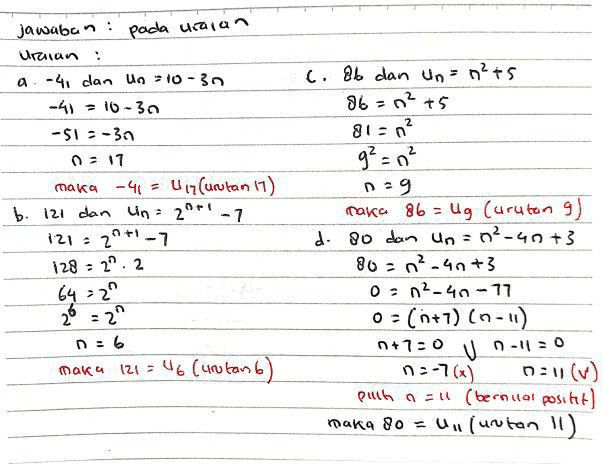 jawaban : pada uraian
uraian :
a. -41 dan Un = 10 - 3n
-41 = 10 - 3n
-51 = -3n
n = 17
maka -41 = U₁₇ (urutan 17)
b. 121 dan Un = 2ⁿ⁺¹ - 7
121 = 2ⁿ⁺¹ - 7
128 = 2ⁿ . 2
64 = 2ⁿ
2⁶ = 2ⁿ
n = 6
maka 121 = U₆ (urutan 6)
c. 86 dan Un = n² + 5
86 = n² + 5
81 = n²
9² = n²
n = 9
maka 86 = U₉ (urutan 9)
d. 80 dan Un = n² - 4n + 3
80 = n² - 4n + 3
0 = n² - 4n - 77
0 = (n+7) (n-11)
n+7 = 0 V n-11 = 0
n = -7 (x) n = 11 (v)
pilih n = 11 (bernilai positif)
maka 80 = U₁₁ (urutan 11)